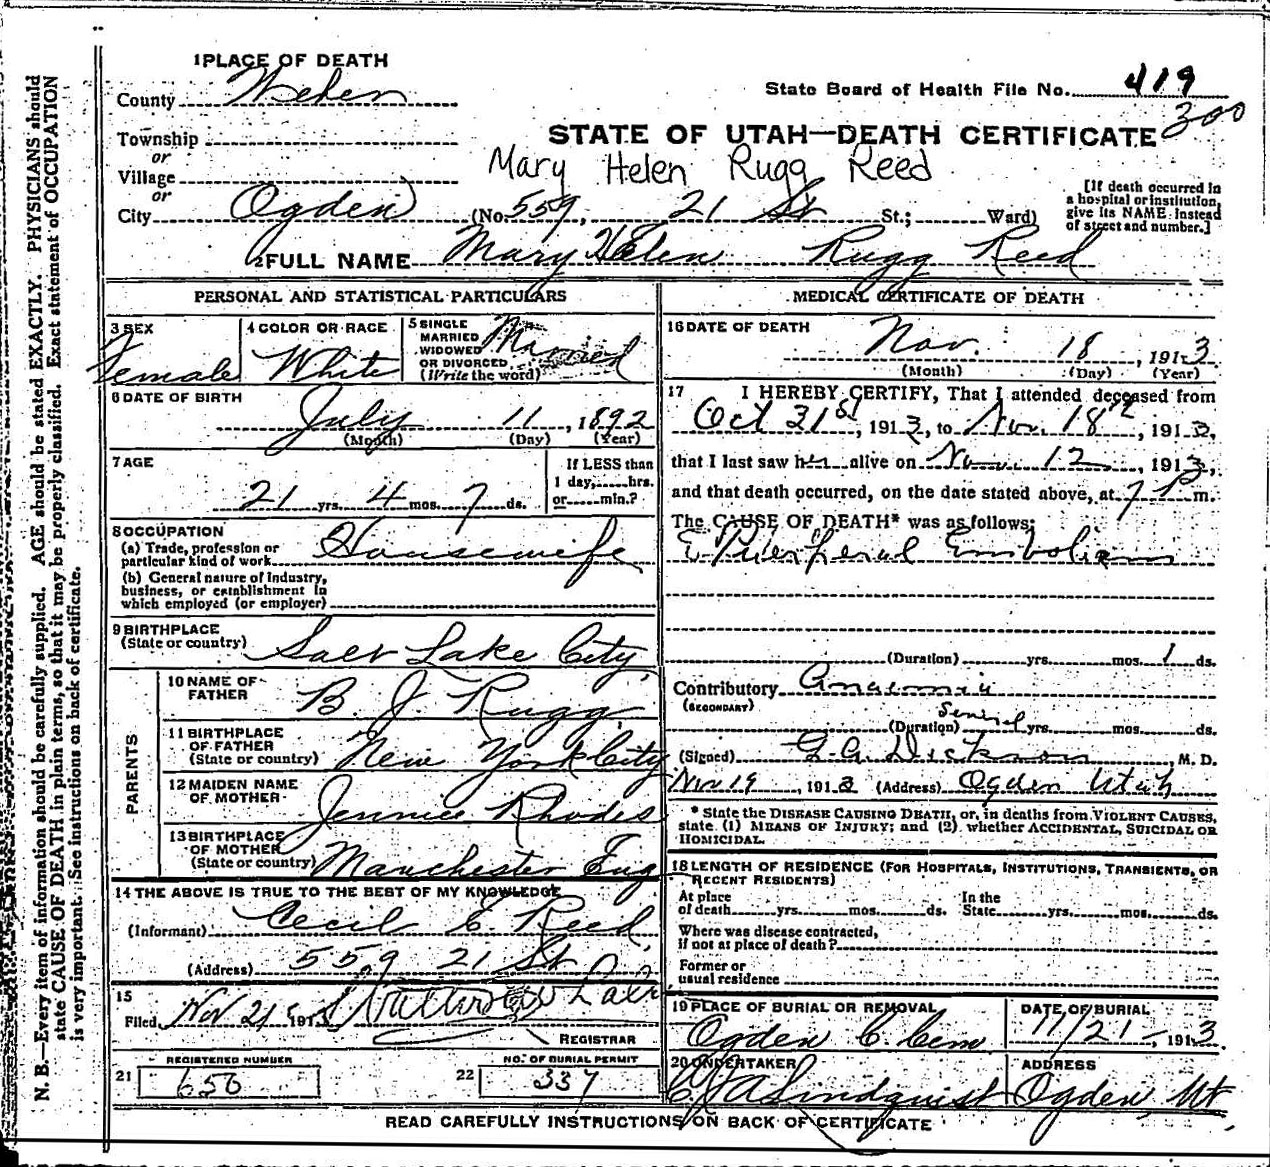 N. B.—Every item of information should be carefully supplied. AGE should be stated EXACTLY. PHYSICIANS should
state CAUSE OF DEATH in plain terms, so that it may be properly classified. Exact statement of OCCUPATION
is very important. See instructions on back of certificate.
1 PLACE OF DEATH
County Weber
State Board of Health File No. 419
300
Township
or
Village
or
STATE OF UTAH—DEATH CERTIFICATE
Mary Helen Rugg Reed
City Ogden (No. 559, 21 St St.; Ward)
[If death occurred in
a hospital or institution,
give its NAME instead
of street and number.]
2 FULL NAME Mary Helen Rugg Reed
PERSONAL AND STATISTICAL PARTICULARS
3 SEX
Female
4 COLOR OR RACE
White
5 SINGLE
MARRIED
WIDOWED
OR DIVORCED
(Write the word)
Married
6 DATE OF BIRTH
July 11, 1892
(Month) (Day) (Year)
7 AGE
21 yrs. 4 mos. 7 ds.
If LESS than
1 day, hrs.
or min.?
8 OCCUPATION
(a) Trade, profession or
particular kind of work Housewife
(b) General nature of Industry,
business, or establishment in
which employed (or employer)
9 BIRTHPLACE
(State or country) Salt Lake City
PARENTS
10 NAME OF
FATHER B. J. Rugg
11 BIRTHPLACE
OF FATHER
(State or country) New York City
12 MAIDEN NAME
OF MOTHER Jennie Rhodes
13 BIRTHPLACE
OF MOTHER
(State or country) Manchester Eng
14 THE ABOVE IS TRUE TO THE BEST OF MY KNOWLEDGE
(Informant) Cecil E. Reed
(Address) 559 21 St
15
Filed Nov 21 1913
REGISTRAR
REGISTERED NUMBER
21 656
NO. OF BURIAL PERMIT
22 337
MEDICAL CERTIFICATE OF DEATH
16 DATE OF DEATH
Nov. 18, 1913
(Month) (Day) (Year)
17 I HEREBY CERTIFY, That I attended deceased from
Oct 31st, 1913, to Nov. 18th, 1913,
that I last saw her alive on Nov. 12, 1913,
and that death occurred, on the date stated above, at 7 P m.
The CAUSE OF DEATH* was as follows:
Puerperal Embolism
(Duration) yrs. mos. 1 ds.
Contributory Anaemia
(SECONDARY)
(Duration) Several yrs. mos. ds.
(Signed) G. A. Dickson, M. D.
Nov 19, 1913 (Address) Ogden Utah
* State the DISEASE CAUSING DEATH, or, in deaths from VIOLENT CAUSES,
state (1) MEANS OF INJURY; and (2) whether ACCIDENTAL, SUICIDAL OR
HOMICIDAL.
18 LENGTH OF RESIDENCE (FOR HOSPITALS, INSTITUTIONS, TRANSIENTS, OR
RECENT RESIDENTS)
At place
of death yrs. mos. ds.
In the
State yrs. mos. ds.
Where was disease contracted,
if not at place of death?
Former or
usual residence
19 PLACE OF BURIAL OR REMOVAL
Ogden C. Cem
DATE OF BURIAL
11/21, 1913
20 UNDERTAKER
Lindquist
ADDRESS
Ogden, Ut.
READ CAREFULLY INSTRUCTIONS ON BACK OF CERTIFICATE